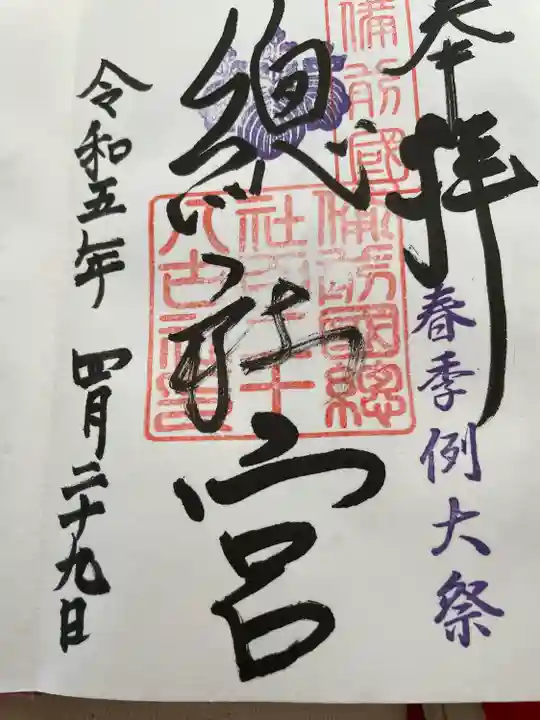 奉拝
春季例大祭
備前國
備前國總
社
總社宮
令和五年 四月二十九日